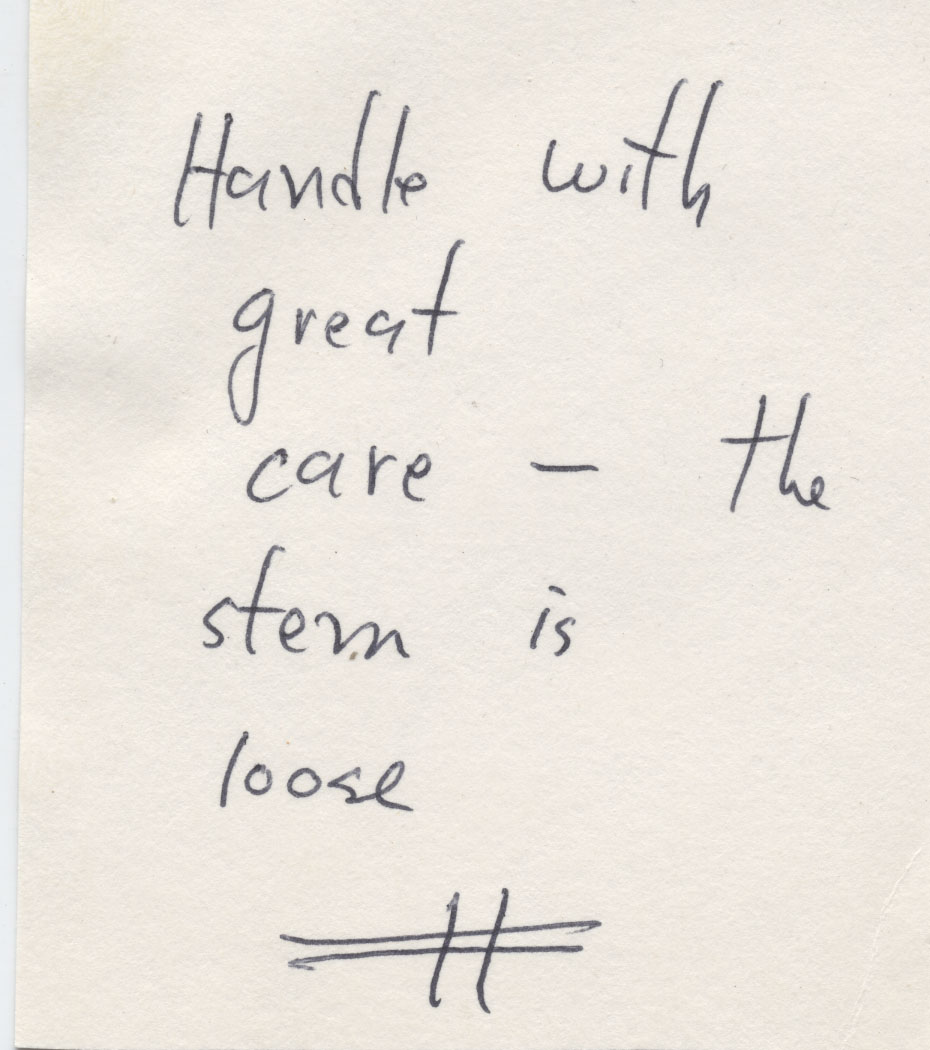 Handle with
great
care – the
stem is
loose